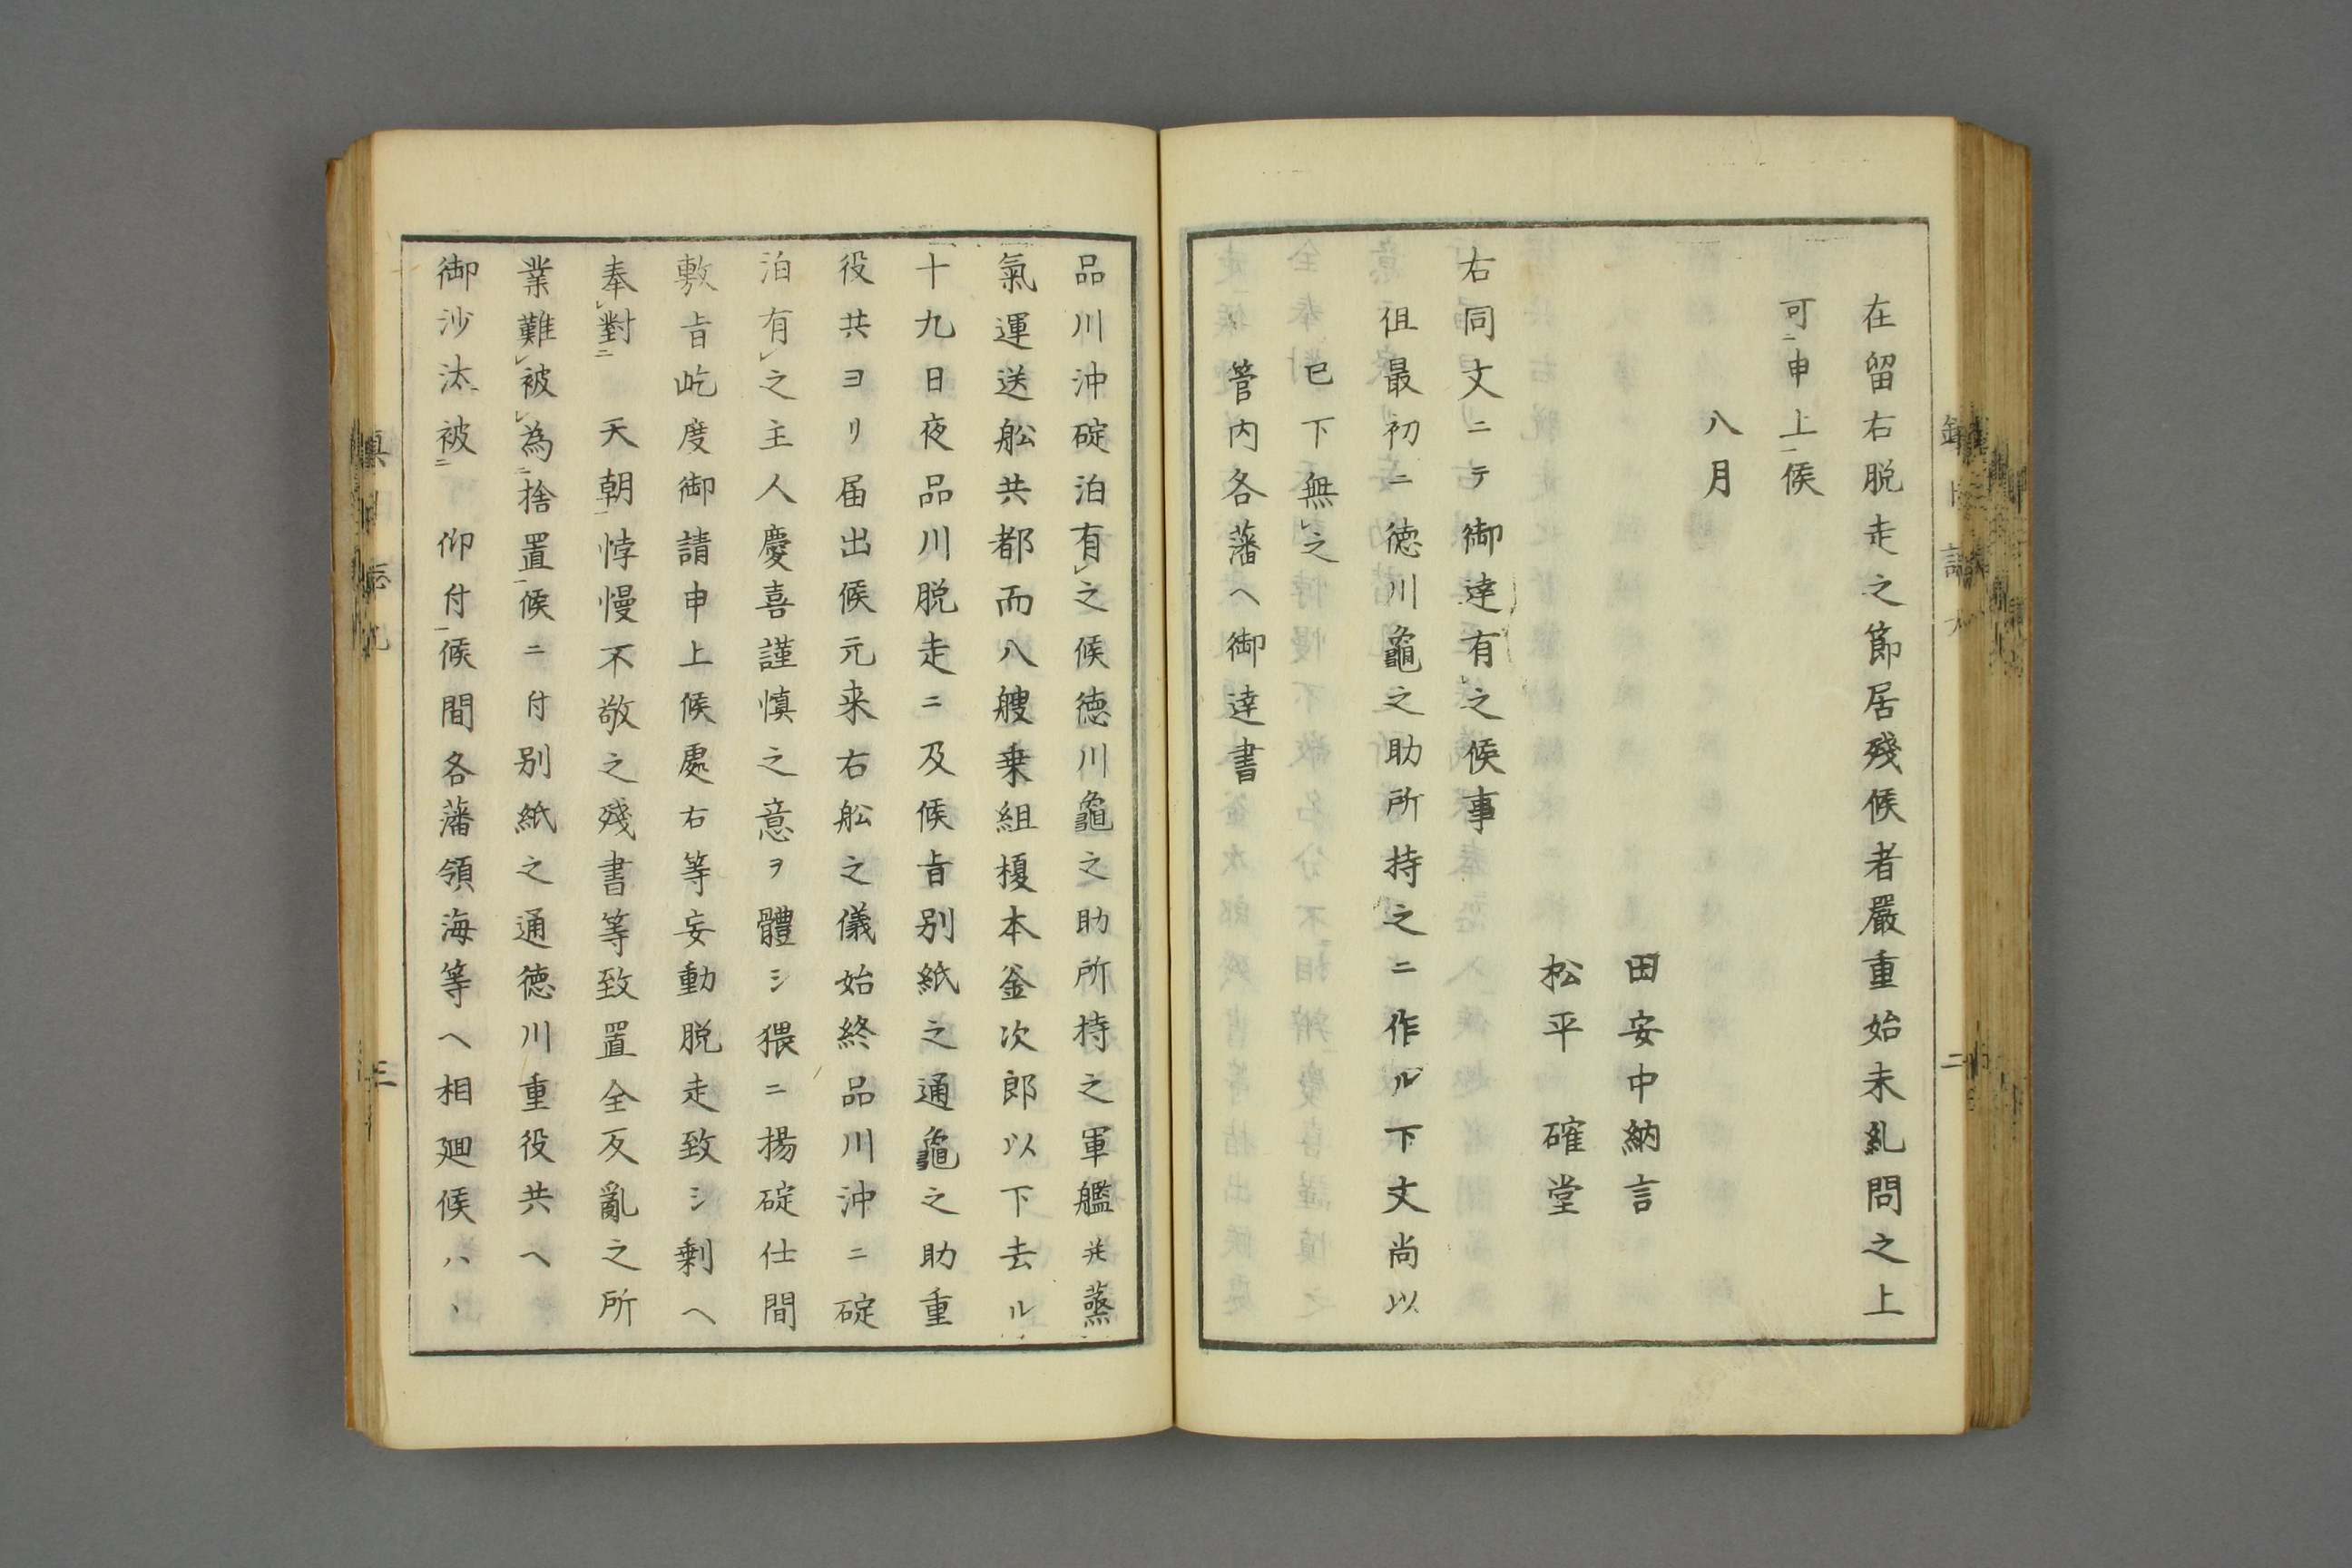 在留右脱走之節居殘候者嚴重始末糺問之上
可ニ申上一候
八月
田安中納言
松平確堂
右同文ニテ御達有レ之候事
但最初ニ徳川龜之助所持之ニ作ル下文尚以
已下無レ之
管内各藩ヘ御達書
品川沖碇泊有レ之候徳川龜之助所持之軍艦并蒸
氣運送舩共都而八艘乗組榎本釜次郎以下去ル
十九日夜品川脱走ニ及候旨別紙之通龜之助重
役共ヨリ届出候元来右舩之儀始終品川沖ニ碇
泊有レ之主人慶喜謹慎之意ヲ體シ猥ニ揚碇仕間
敷旨屹度御請申上候處右等妄動脱走致シ剰ヘ
奉レ對ニ　天朝一悖慢不敬之殘書等致置全反亂之所
業難レ被レ為ニ捨置一候ニ付別紙之通徳川重役共ヘ
御沙汰被ニ　仰付一候間各藩領海等ヘ相廻候ハヽ
三